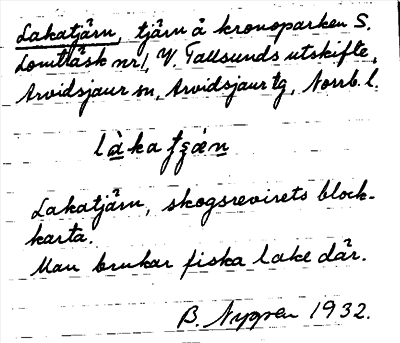 Lakatjärn, tjärn å kronoparken S.
Lomträsk nr 1, V. Tallsunds utskifte,
Arvidsjaur sn, Arvidsjaur tg, Norrb. l.
làkatʒǽn
Lakatjärn, skogsrevirets block-
karta.
Man brukar fiska lake där.
B. Nygren 1932.